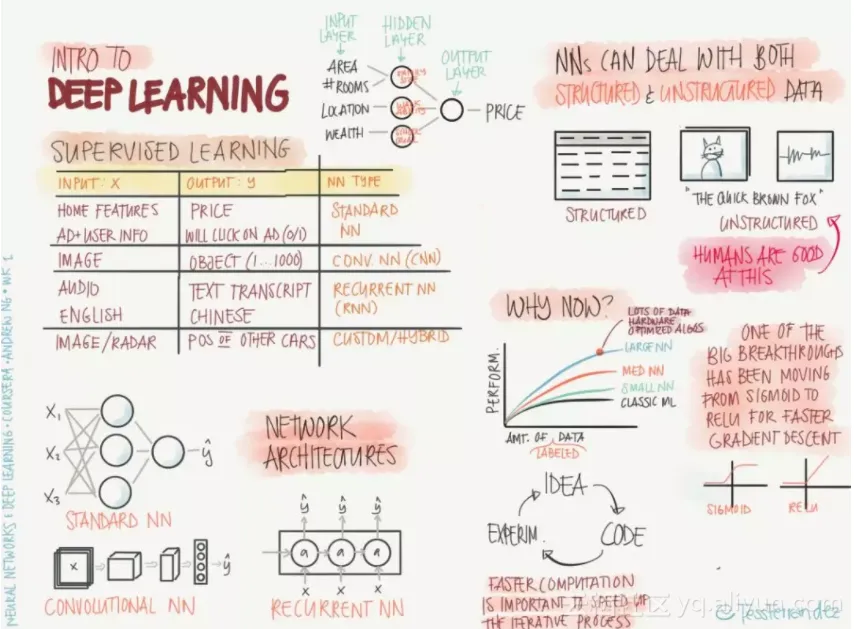 INTRO TO
DEEP LEARNING
INPUT LAYER
HIDDEN LAYER
OUTPUT LAYER
AREA
#ROOMS
LOCATION
WEALTH
PRICE
SUPERVISED LEARNING
INPUT: X OUTPUT: y NN TYPE
HOME FEATURES PRICE STANDARD
AD+USER INFO WILL CLICK ON AD (0/1) NN
IMAGE OBJECT (1...1000) CONV. NN (CNN)
AUDIO TEXT TRANSCRIPT RECURRENT NN
ENGLISH CHINESE (RNN)
IMAGE/RADAR POS OF OTHER CARS CUSTOM/HYBRID
X1
X2
X3
ŷ
STANDARD NN
x
ŷ
CONVOLUTIONAL NN
NETWORK
ARCHITECTURES
ŷ ŷ ŷ
a a a
x x x
RECURRENT NN
NNs CAN DEAL WITH BOTH
STRUCTURED & UNSTRUCTURED DATA
STRUCTURED
"THE QUICK BROWN FOX"
UNSTRUCTURED
HUMANS ARE GOOD
AT THIS
WHY NOW?
LOTS OF DATA
HARDWARE
OPTIMIZED ALGOS
LARGE NN
MED NN
SMALL NN
CLASSIC ML
PERFORM.
AMT. OF DATA
LABELED
ONE OF THE
BIG BREAKTHROUGHS
HAS BEEN MOVING
FROM SIGMOID TO
RELU FOR FASTER
GRADIENT DESCENT
SIGMOID
RELU
IDEA
CODE
EXPERIM.
FASTER COMPUTATION
IS IMPORTANT TO SPEED UP
THE ITERATIVE PROCESS
NEURAL NETWORKS & DEEP LEARNING · COURSERA · ANDREW NG · WK 1
yq.aliyun.com